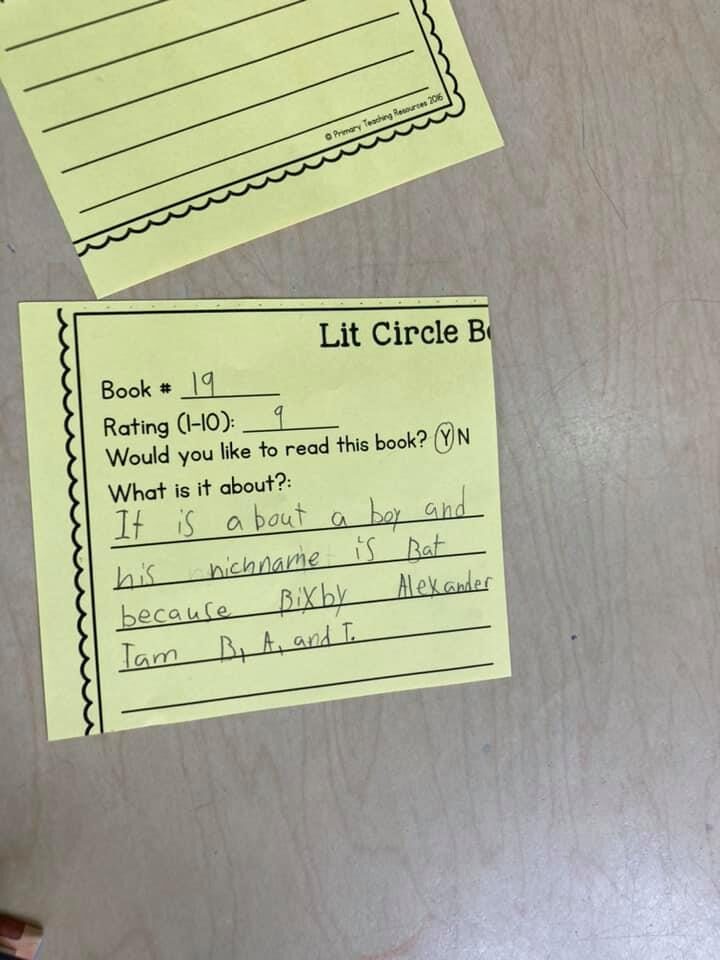 © Primary Teaching Resources 2016
Lit Circle B
Book # 19
Rating (1-10): 9
Would you like to read this book? Y N
What is it about?:
It is about a boy and
his nichname is Bat
because Bixby Alexander
Tam B, A, and T.